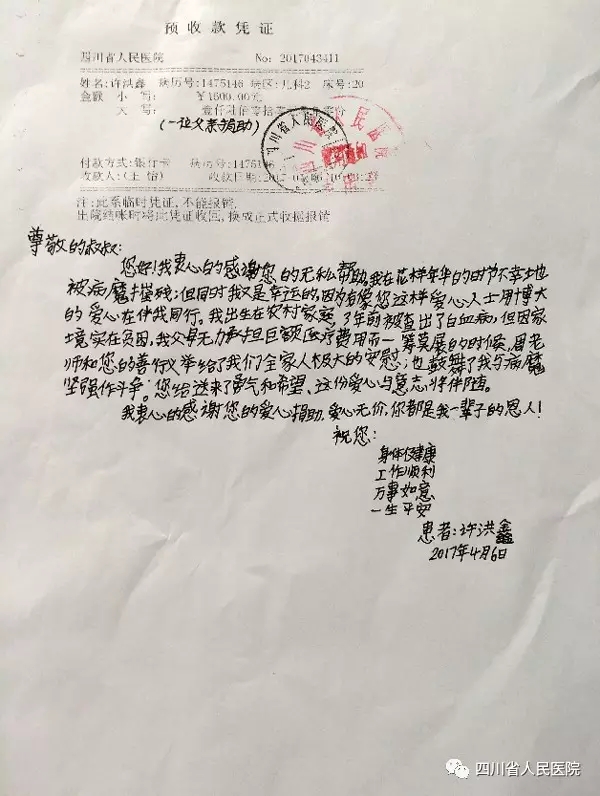 预收款凭证
四川省人民医院 No: 2017043411
姓名:许洪鑫 病历号:1475146 病区:儿科2 床号:20
金额 小 写: ¥1600.00元
大 写: 壹仟
(一位父亲捐助)
四川省人民医院
人民
付款方式:银行卡 病历号:1475146
收款人:(王怡) 收款日期:
注:此系临时凭证,不能报销,
出院结账时将此凭证收回,换成正式收据报销
尊敬的叔叔:
您好!我衷心的感谢您的无私帮助,我在花样年华的时节不幸地
被病魔摧残;但同时我又是幸运的,因为有像您这样爱心人士用博大
的爱心在伴我同行。我出生在农村家庭,3年前被查出了白血病,但因家
境实在贫困,我父母无力承担巨额医疗费用而一筹莫展的时候,周老
师和您的善行义举给了我们全家人极大的安慰;也鼓舞了我与病魔
坚强作斗争。您给送来了勇气和希望、这份爱心与意志,将伴随。
我衷心的感谢您的爱心捐助,爱心无价,你都是我一辈子的恩人!
祝您:
身体健康
工作顺利
万事如意
一生平安
患者:许洪鑫
2017年4月6日
四川省人民医院